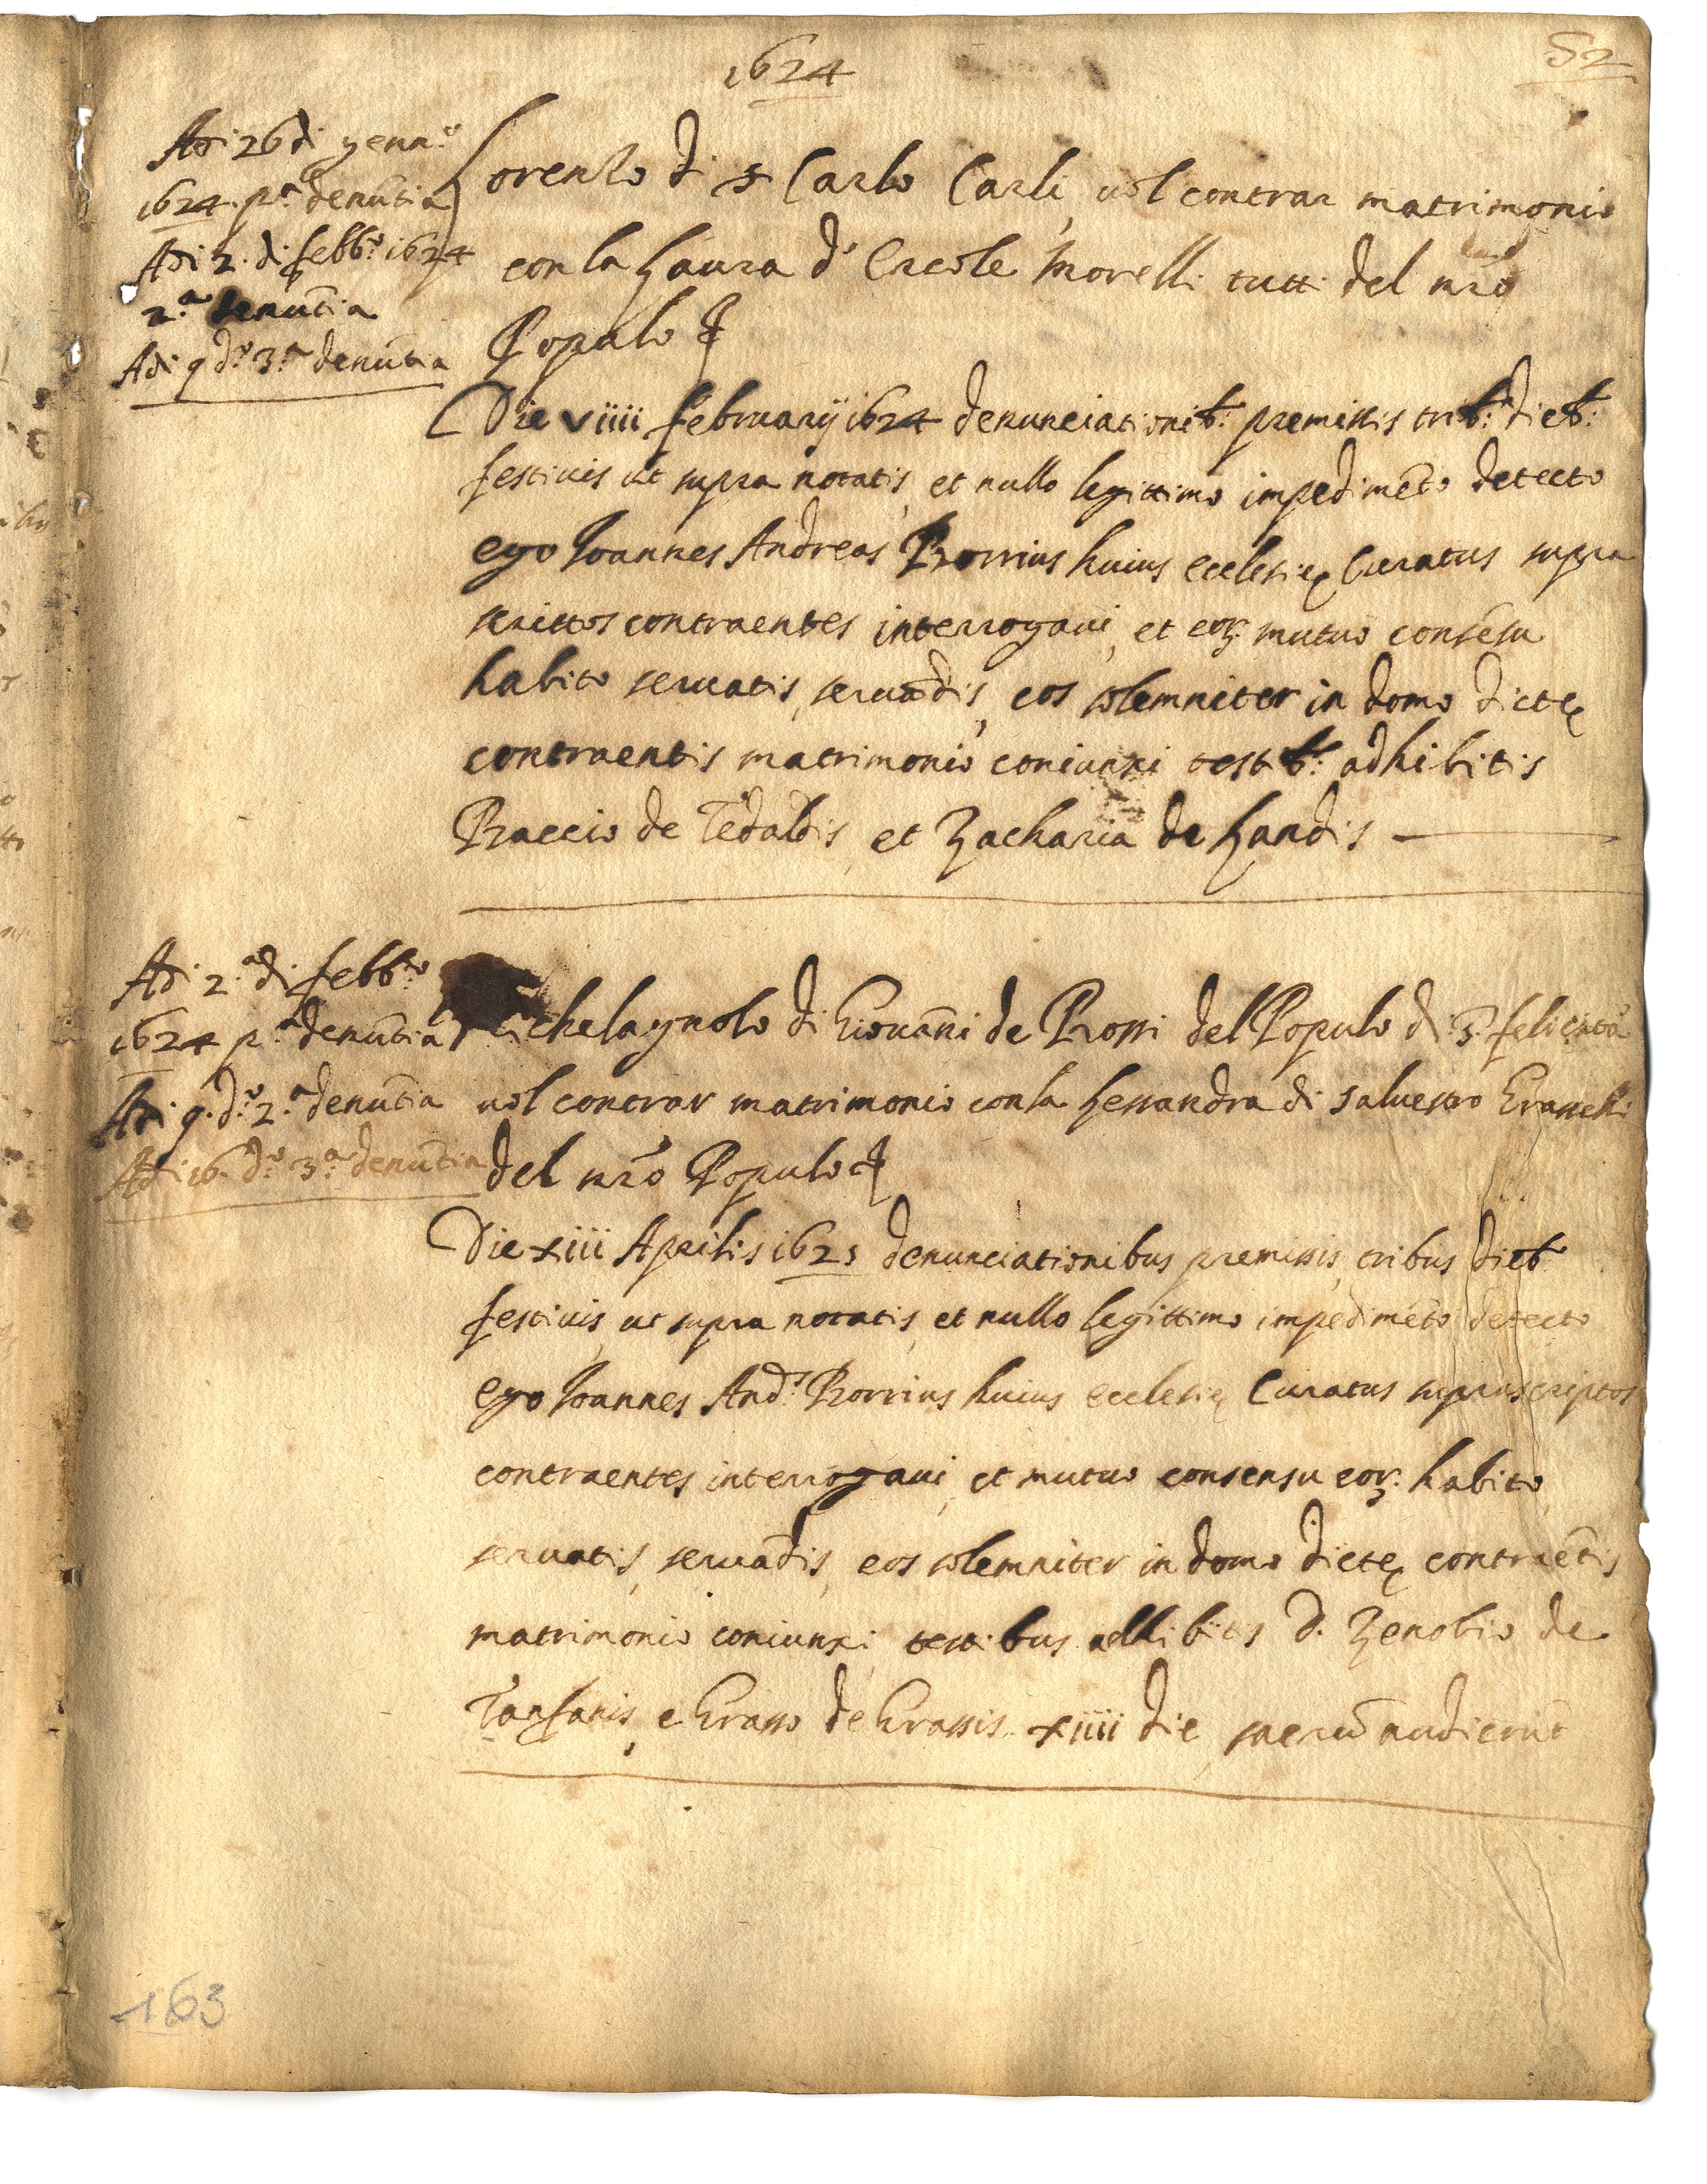 1624
52
Adi 26 di genn.o
1624 p.a denūtia
Adi 2. di febb.o 1624
2.a denūtia
Adi 9 d.o 3.a denūtia
Lorenzo di s Carlo Carli, uol contrar matrimonio
con la Laura d' Ercole Morelli tutti del nr̄o
Popolo
Die viiii februarij 1624 denunciationib: premissis trib: dieb:
festiuis ut supra notatis, et nullo legittimo impedimēto detecto
ego Joannes Andreas huius ecclesię Curatus supra
scrittos contraentes interrogaui, et eor mutuo consēsu
habito seruatis, seruādis, eos solemniter in domo dictę
contraentis matrimonio coniunxi testib: adhibitis
Baccio de Tedaldis, et Zacharia de Landis
Adi 2.a di febb.o
1624 p.a denūtia
Adi 9. d.o 2.a denūtia
Adi 16. d.o 3.a denūtia
Michelagnolo di Giouāni de Rossi del Popolo di S. felicita
uol contrar matrimonio con la Lessandra di Saluestro
del nr̄o Popolo
Die xiii Aprilis 1625 denunciationibus premissis, tribus dieb
festiuis, ut supra notatis, et nullo legittimo impedimēto detecto
ego Joannes And.s huius ecclesię Curatus suprascriptos
contraentes interrogaui, et mutuo consensu eor habito
seruatis, seruādis, eos solemniter in domo dictę contraētis
matrimonio coniunxi, testibus adhibitis D. Zenobio de
e Grasso de Grassis. xiiii die, sacrū audierūt
163